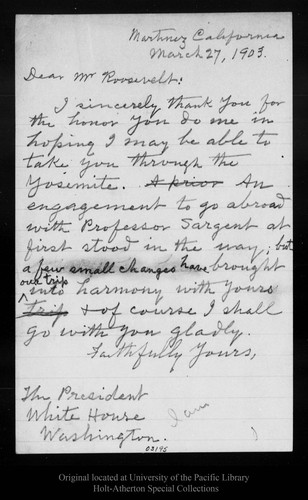 Martinez California
March 27, 1903.
Dear Mr Roosevelt:
I sincerely thank you for
the honor you do me in
hoping I may be able to
take you through the
Yosemite. A prior An
engagement to go abroad
with Professor Sargent at
first stood in the way, but
a few small changes have brought
our trip
into harmony with yours
trip & of course I shall
go with you gladly.
Faithfully Yours,
The President
White House
Washington.
I am
02195
Original located at University of the Pacific Library
Holt-Atherton Special Collections